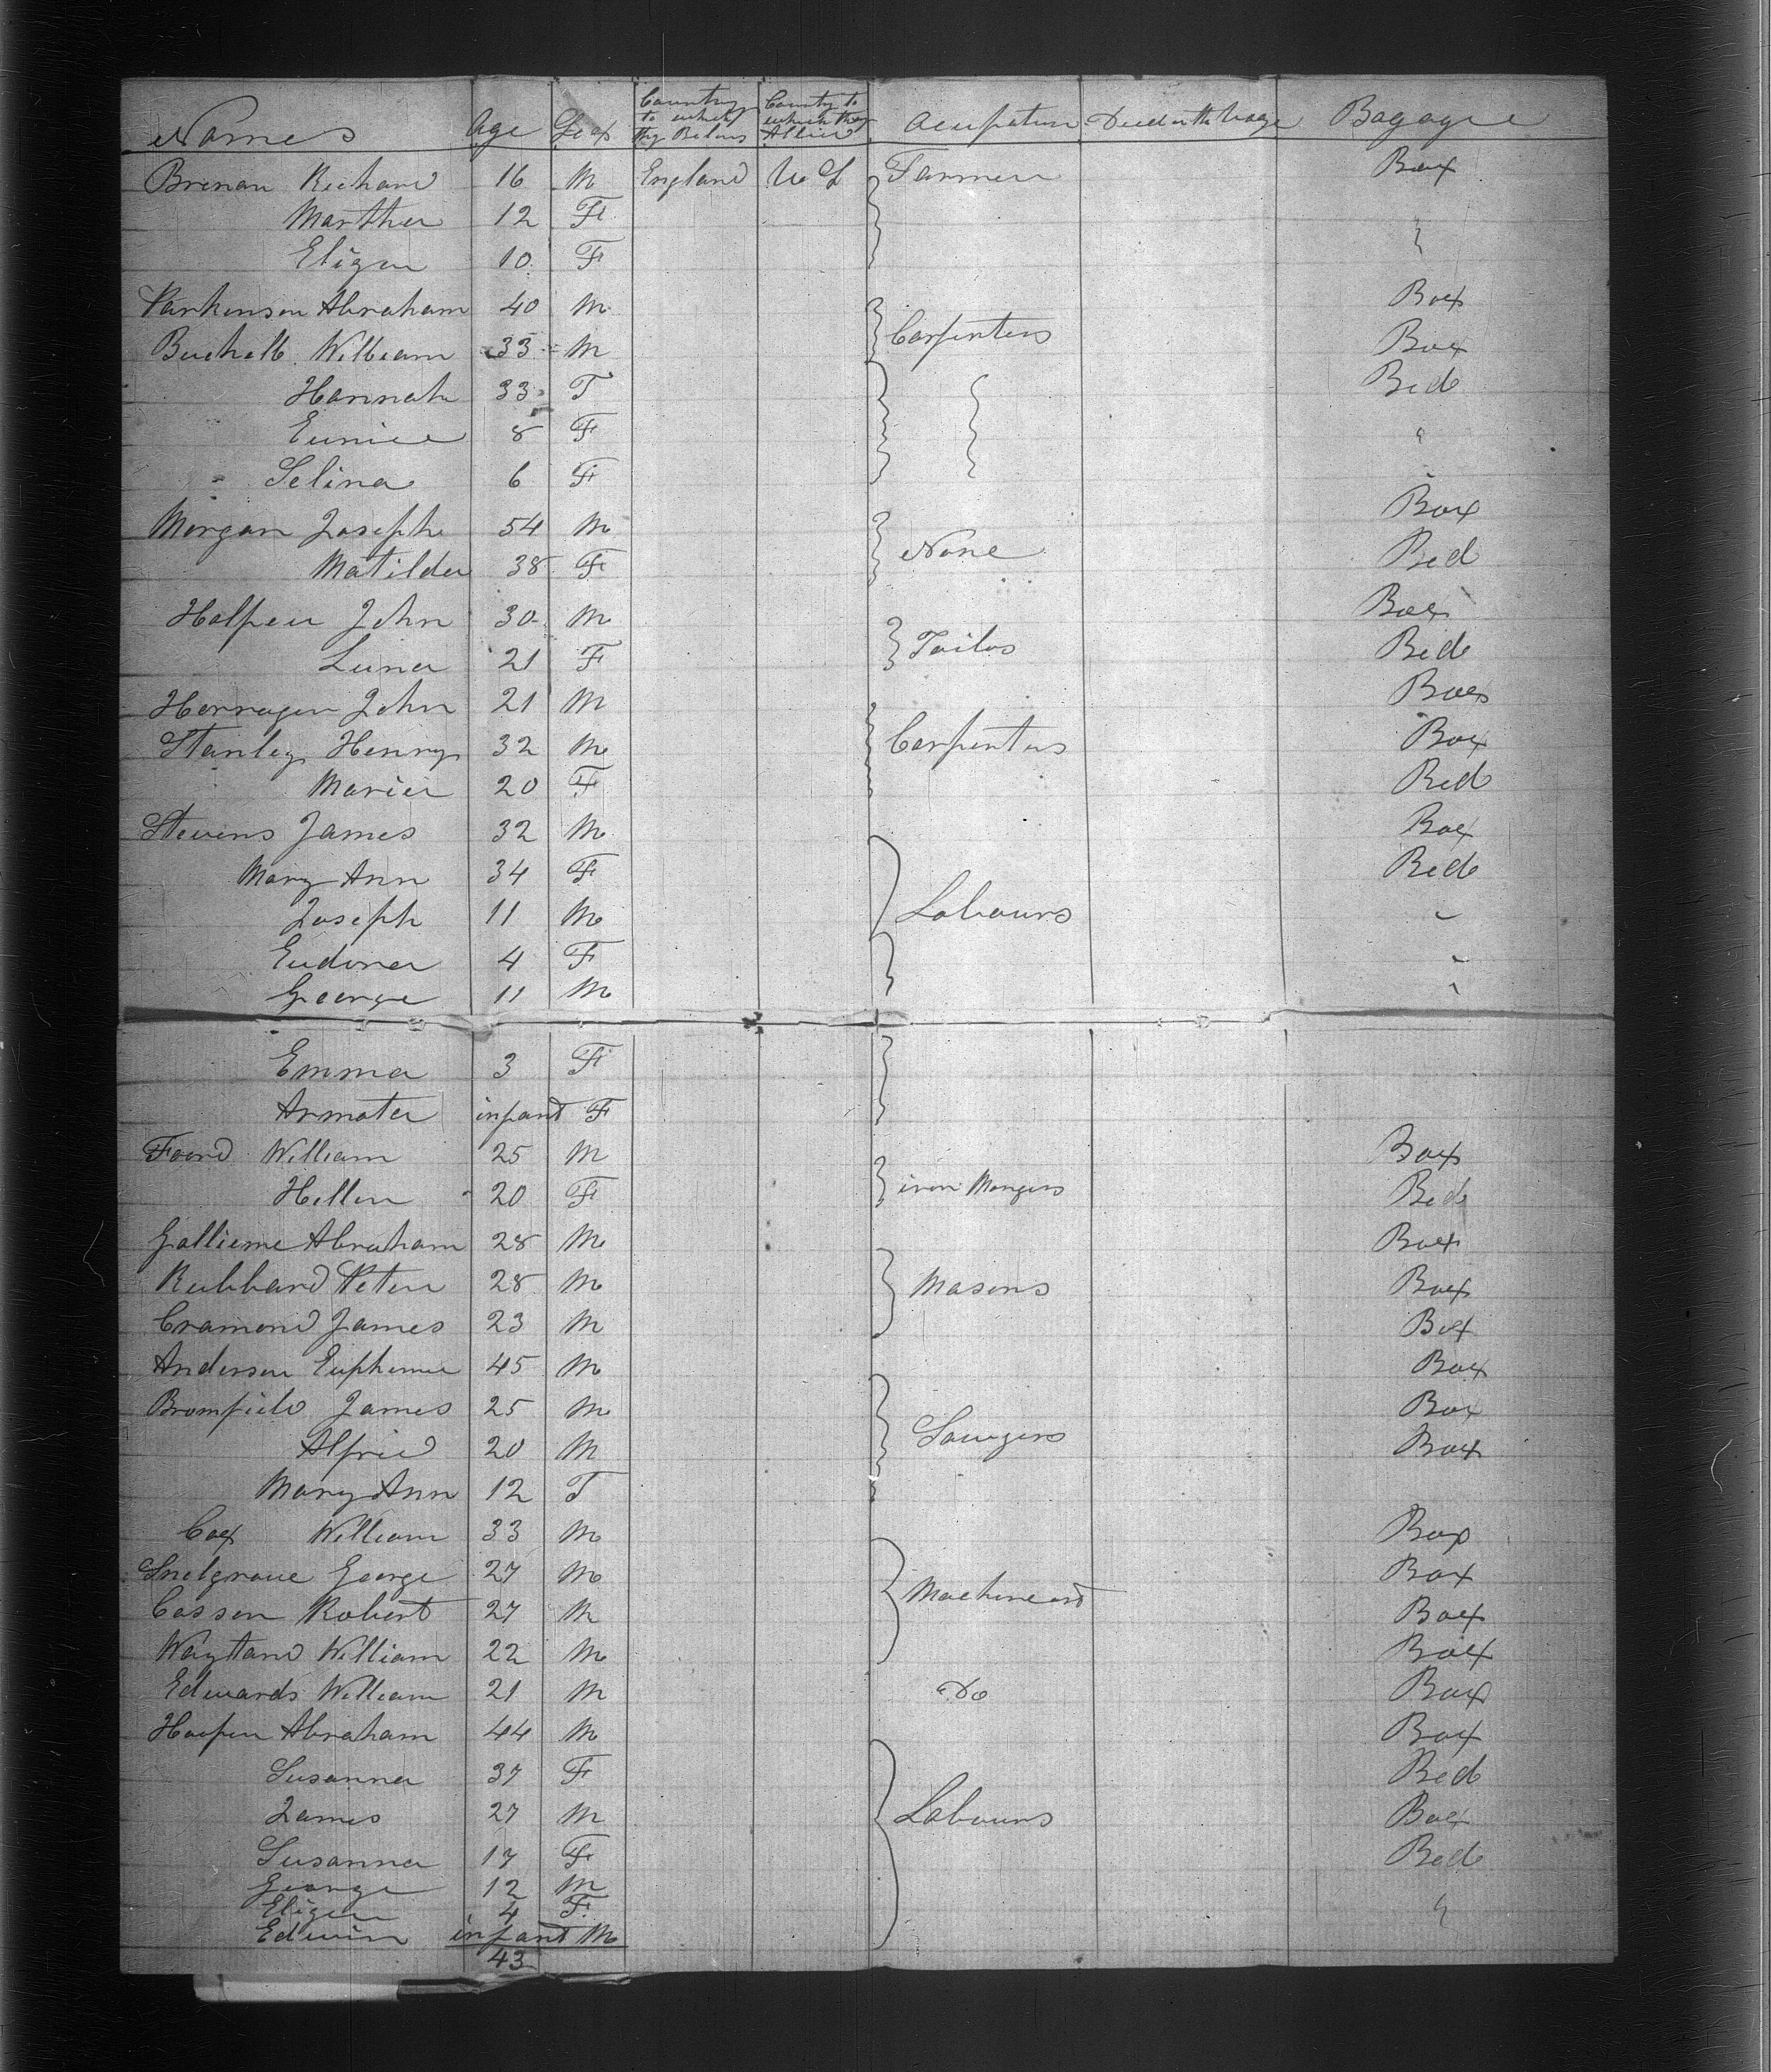 Names Age Sex Country to which they Belong Country to which they Allied Acupation Died on the Voage Bagage
Brenan Richard 16 M England U S Farmer Box
Marther 12 F "
Eliza 10 F
Parkinson Abraham 40 M Box
Carpenters
William 33 M Box
Hannah 33 F Bed
Eunice 8 F "
" Selina 6 F "
Morgan Joseph 54 M Box
None
Matilda 38 F Bed
Halpen John 30 M Box
Tailos
Luna 21 F Bed
John 21 M Box
Stanley Henry 32 M Carpenters Box
Marier 20 F Bed
Stevens James 32 M Box
Mary Ann 34 F Bed
Joseph 11 M Labours "
Eudora 4 F "
George 11 M "
Emma 3 F
infant F
Foord William 25 M Box
Hellen 20 F iron Mongers Bed
Abraham 28 M Box
Hubbard Peter 28 M Masons Box
Cramond James 23 M Box
Anderson Euphemia 45 M Box
Bromfield James 25 M Box
Sawyers
Alfried 20 M Box
Mary Ann 12 F
Cox William 33 M Box
Snelgrove George 27 M Box
Machineest
Casson Robert 27 M Box
Wayland William 22 M Box
Edwards William 21 M Do Box
Hooper Abraham 44 M Box
Susanna 37 F Bed
James 27 M Labours Box
Susanna 17 F Bed
George 12 M
Eliza 4 F "
Edwin infant M
43